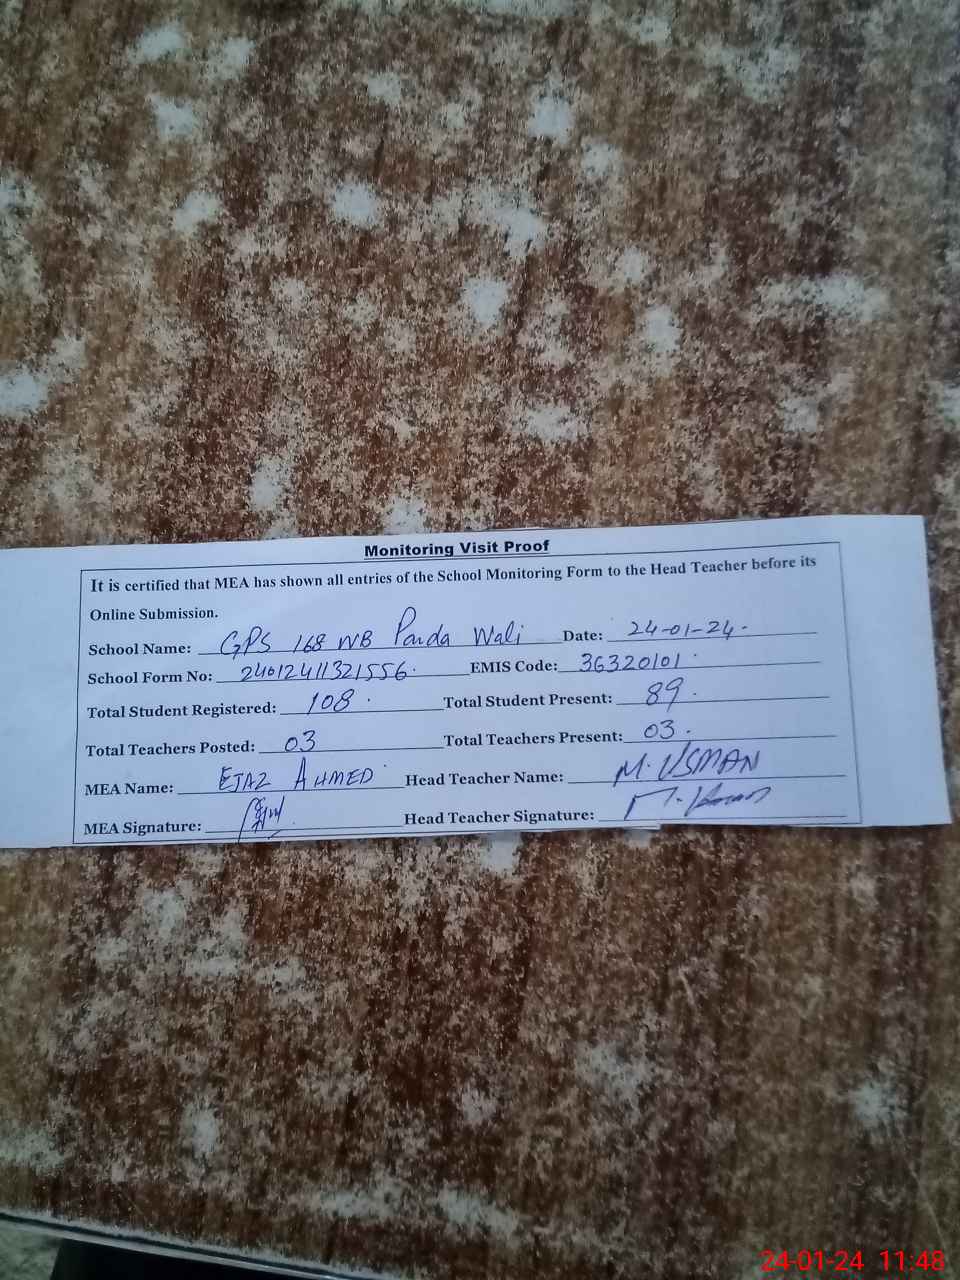 Monitoring Visit Proof
It is certified that MEA has shown all entries of the School Monitoring Form to the Head Teacher before its
Online Submission.
School Name: GPS 168 WB Panda Wali Date: 24-01-24.
School Form No: 24012411321556. EMIS Code: 36320101.
Total Student Registered: 108. Total Student Present: 89.
Total Teachers Posted: 03 Total Teachers Present: 03.
MEA Name: EJAZ AHMED Head Teacher Name: M. USMAN
MEA Signature: Head Teacher Signature:
24-01-24 11:48